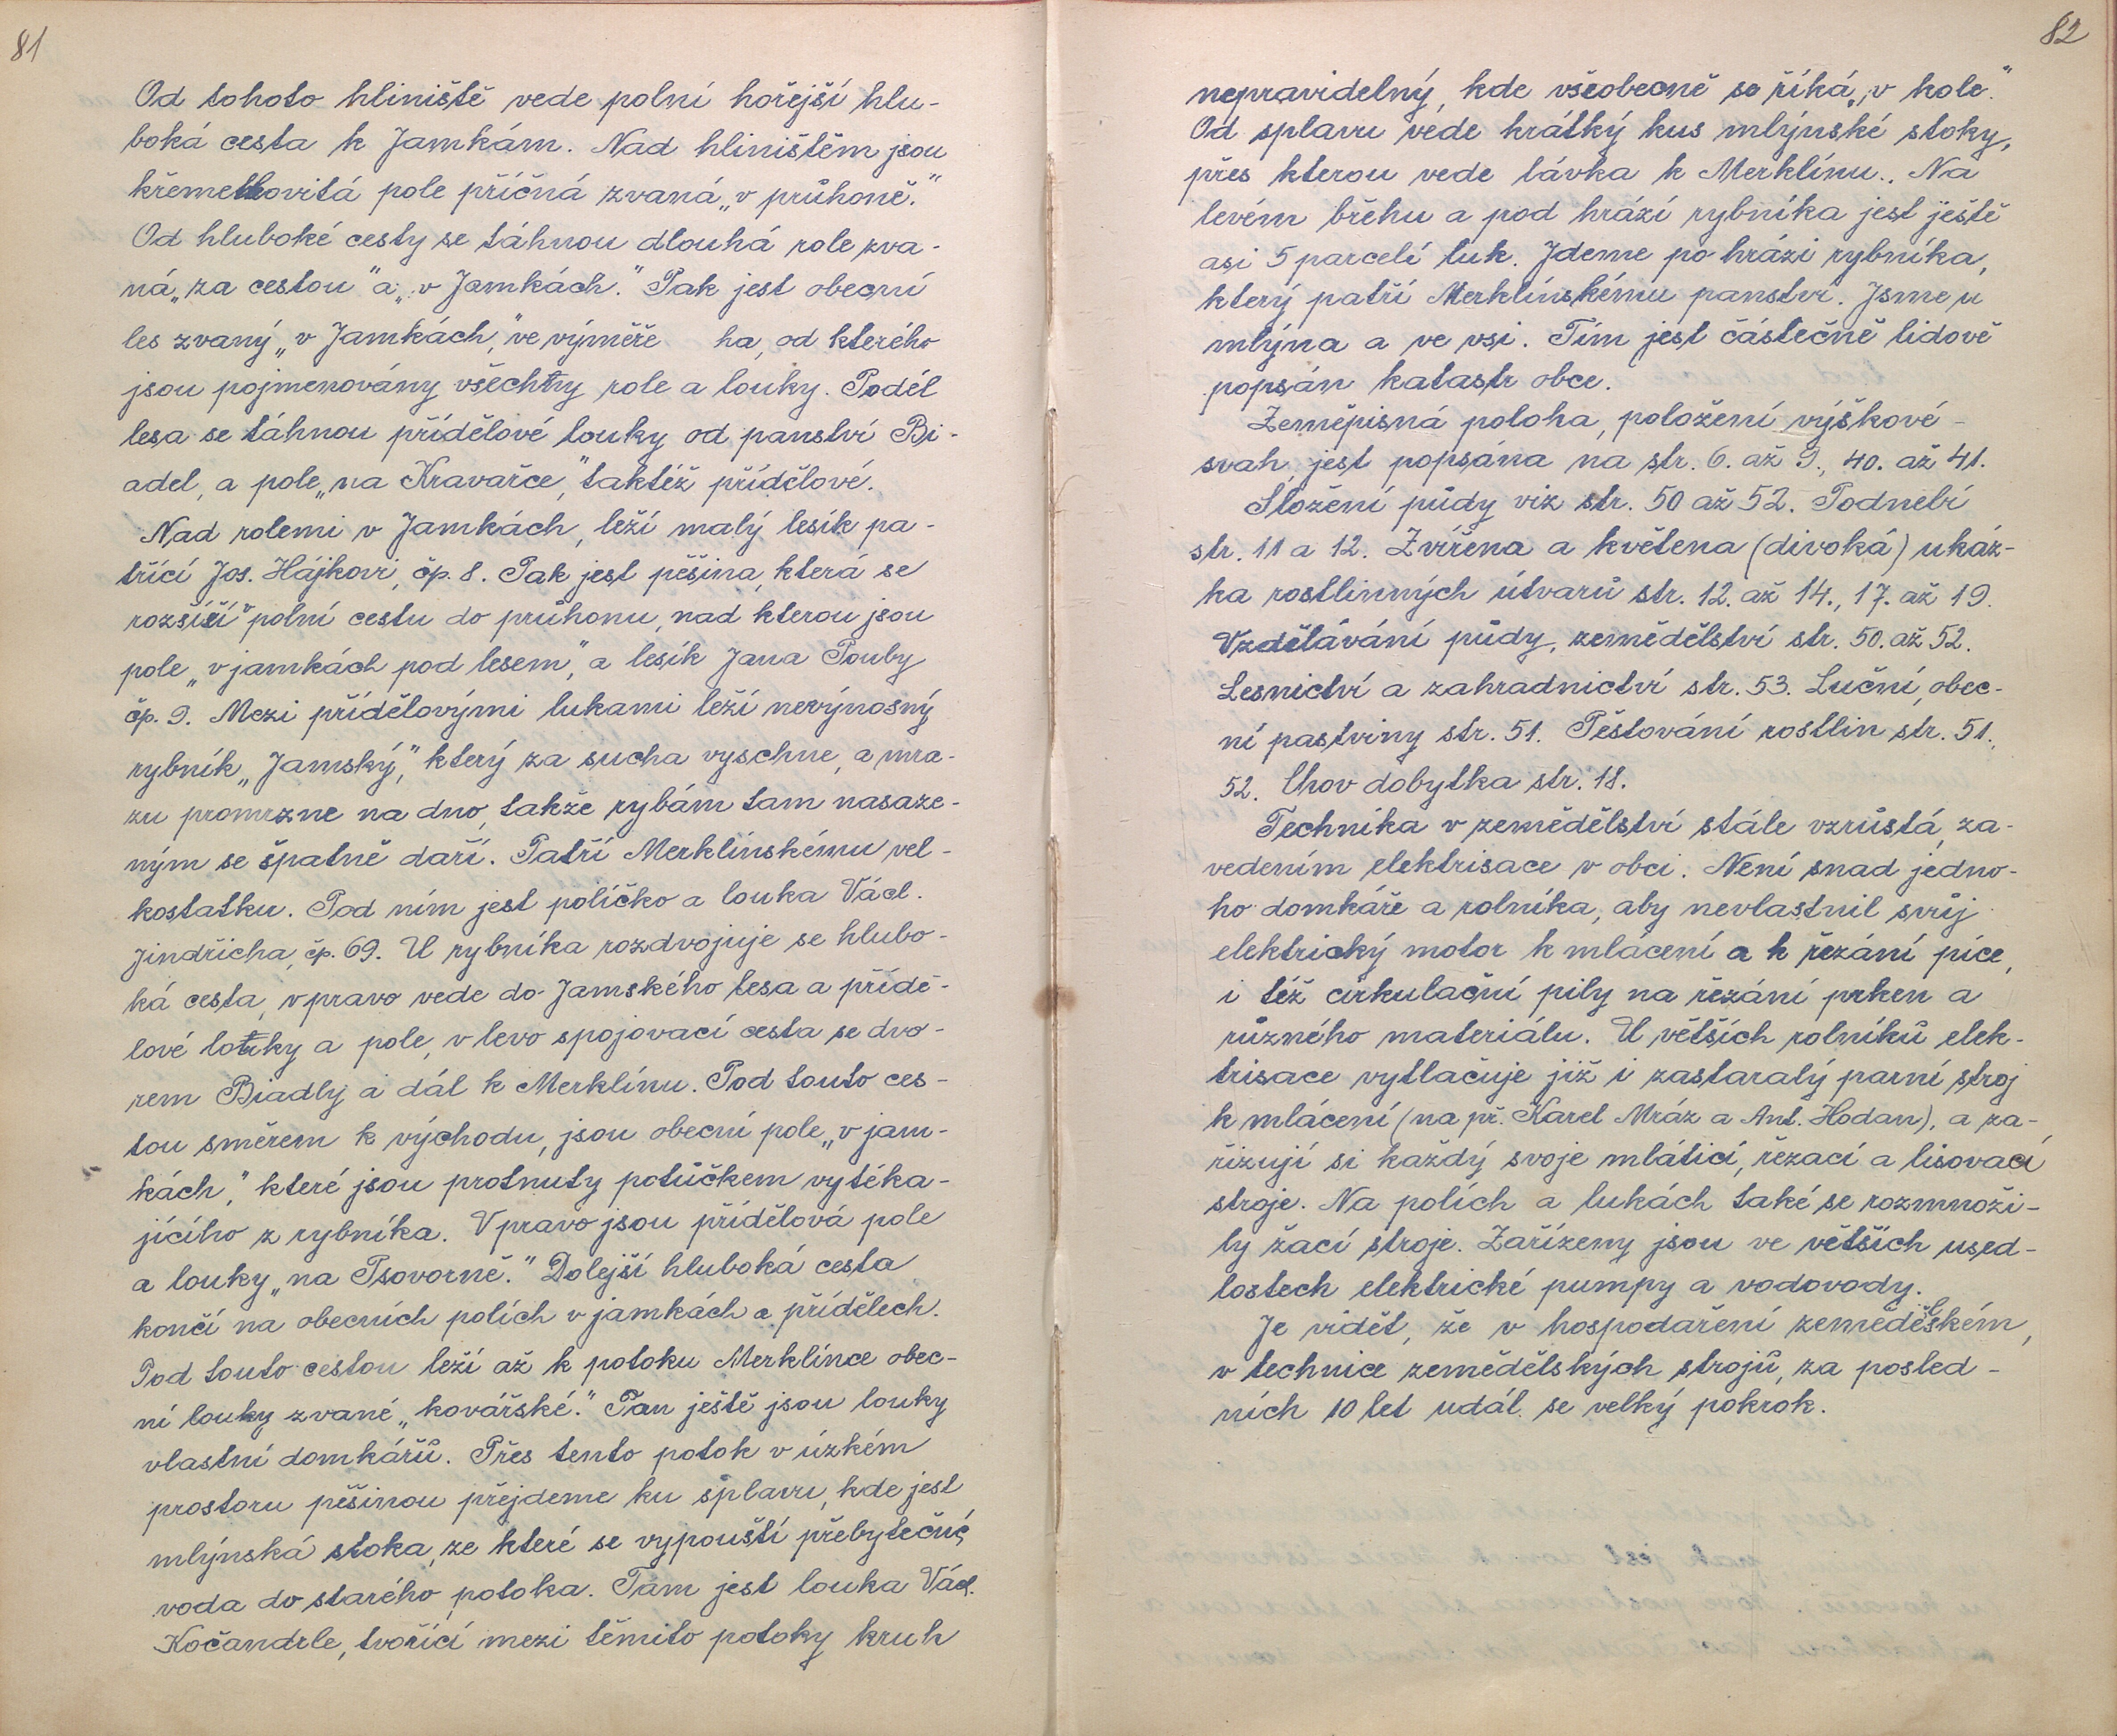 81
Od tohoto hliniště vede polní hořejší hlu-
boká cesta k Jamkám. Nad hliništěm jsou
křemelkovitá pole příčná zvaná „v průhoně."
Od hluboké cesty se táhnou dlouhá role zva-
ná „za cestou" a „v Jamkách." Pak jest obecní
les zvaný „v Jamkách," ve výměře ha, od kterého
jsou pojmenovány všechny role a louky. Podél
lesa se táhnou přídělové louky od panství Bi-
adel, a pole „na Kravařce," taktéž přídělové.
Nad rolemi v Jamkách, leží malý lesík pa-
třící Jos. Hájkovi, čp. 8. Pak jest pěšina, která se
rozšíří v polní cestu do průhonu, nad kterou jsou
pole „v jamkách pod lesem," a lesík Jana Pouby
čp. 9. Mezi přídělovými lukami leží nevýnosný
rybník „Jamský," který za sucha vyschne, a mra-
zu promrzne na dno, takže rybám tam nasaze-
ným se špatně daří. Patří Merklínskému vel-
kostatku. Pod ním jest políčko a louka Václ.
Jindřicha, čp. 69. U rybníka rozdvojuje se hlubo-
ká cesta, vpravo vede do Jamského lesa a přídě-
lové louky a pole, v levo spojovací cesta se dvo-
rem Biadly a dál k Merklínu. Pod touto ces-
tou směrem k východu, jsou obecní pole „v jam-
kách," které jsou protnuty potůčkem vytéka-
jícího z rybníka. Vpravo jsou přídělová pole
a louky „na Psovorně." Dolejší hluboká cesta
končí na obecních polích v jamkách a přídělech.
Pod touto cestou leží až k potoku Merklínce obec-
ní louky zvané „kovářské." Pan ještě jsou louky
vlastní domkářů. Přes tento potok v úzkém
prostoru pěšinou přejdeme ku splavu, kde jest
mlýnská stoka, ze které se vypouští přebytečná
voda do starého potoka. Tam jest louka Václ.
Kočandrle, tvořící mezi těmito potoky kruh
82
nepravidelný, kde všeobecně se říká „v kole."
Od splavu vede krátký kus mlýnské stoky,
přes kterou vede lávka k Merklínu. Na
levém břehu a pod hrází rybníka jest ještě
asi 5 parcelí luk. Jdeme po hrázi rybníka,
který patří Merklínskému panství. Jsme u
mlýna a ve vsi. Tím jest částečně lidově
popsán katastr obce.
Zeměpisná poloha, položení výškové -
svah, jest popsána na str. 6. až 9., 40. až 41.
Složení půdy viz str. 50 až 52. Podnebí
str. 11 a 12. Zvířena a květena (divoká) ukáz-
ka rostlinných útvarů str. 12. až 14., 17. až 19.
Vzdělávání půdy, zemědělství str. 50. až 52.
Lesnictví a zahradnictví str. 53. Luční, obec-
ní pastviny str. 51. Pěstování rostlin str. 51.,
52. Chov dobytka str. 18.
Technika v zemědělství stále vzrůstá, za-
vedením elektrisace v obci. Není snad jedno-
ho domkáře a rolníka, aby nevlastnil svůj
elektrický motor k mlácení a k řezání píce,
i též cirkulační pily na řezání prken a
různého materiálu. U větších rolníků elek-
trisace vytlačuje již i zastaralý parní stroj
k mlácení (na př. Karel Mráz a Ant. Hodan), a za-
řizují si každý svoje mláticí, řezací a lisovací
stroje. Na polích a lukách také se rozmnoži-
ly žací stroje. Zařízeny jsou ve větších used-
lostech elektrické pumpy a vodovody.
Je vidět, že v hospodaření zemědělském,
v technice zemědělských strojů, za posled-
ních 10 let udál se velký pokrok.